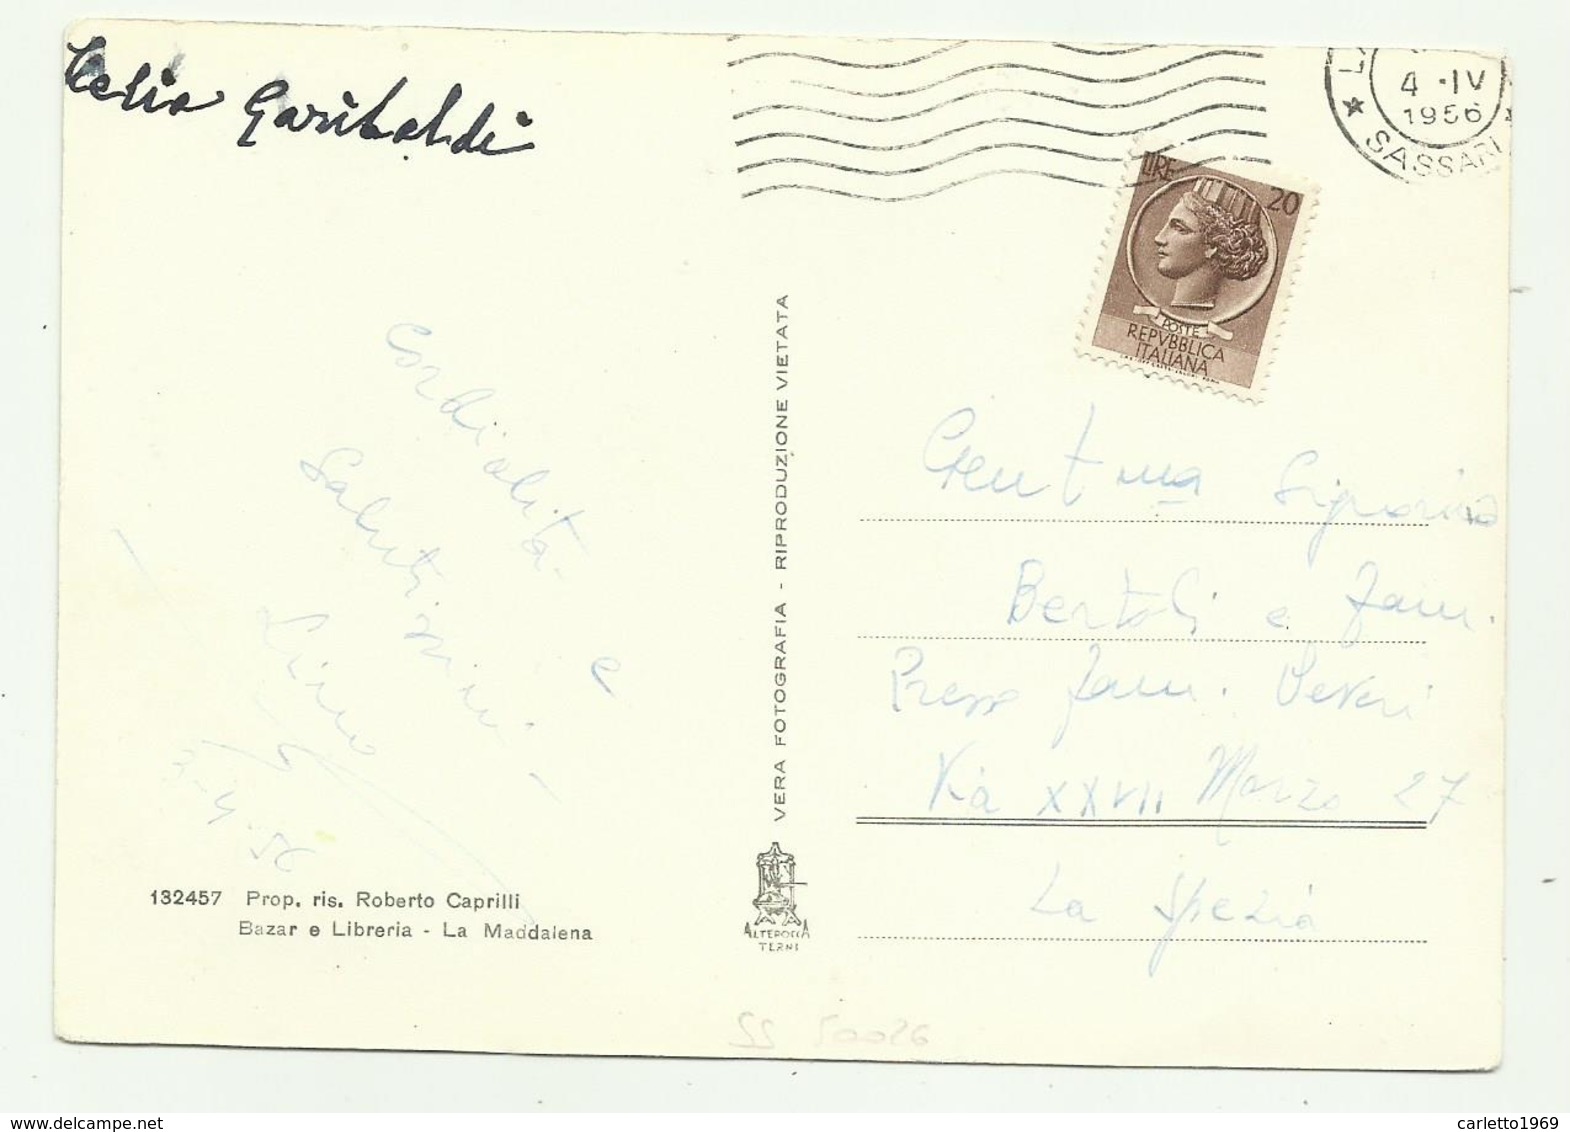 Clelia Garibaldi
4 • IV
1956
SASSARI
LIRE 20
POSTE
REPVBBLICA
ITALIANA
Cordialità
e
Salutissimi
Lino
3-4-56
VERA FOTOGRAFIA - RIPRODUZIONE VIETATA
Gent ma Signorina
Bertoli e Fam.
Presso Fam. Veveri
Via XXVII Marzo 27
La Spezia
132457 Prop. ris. Roberto Caprilli
Bazar e Libreria - La Maddalena
ALTEROCCA
TERNI
SS 50026
carletto1969